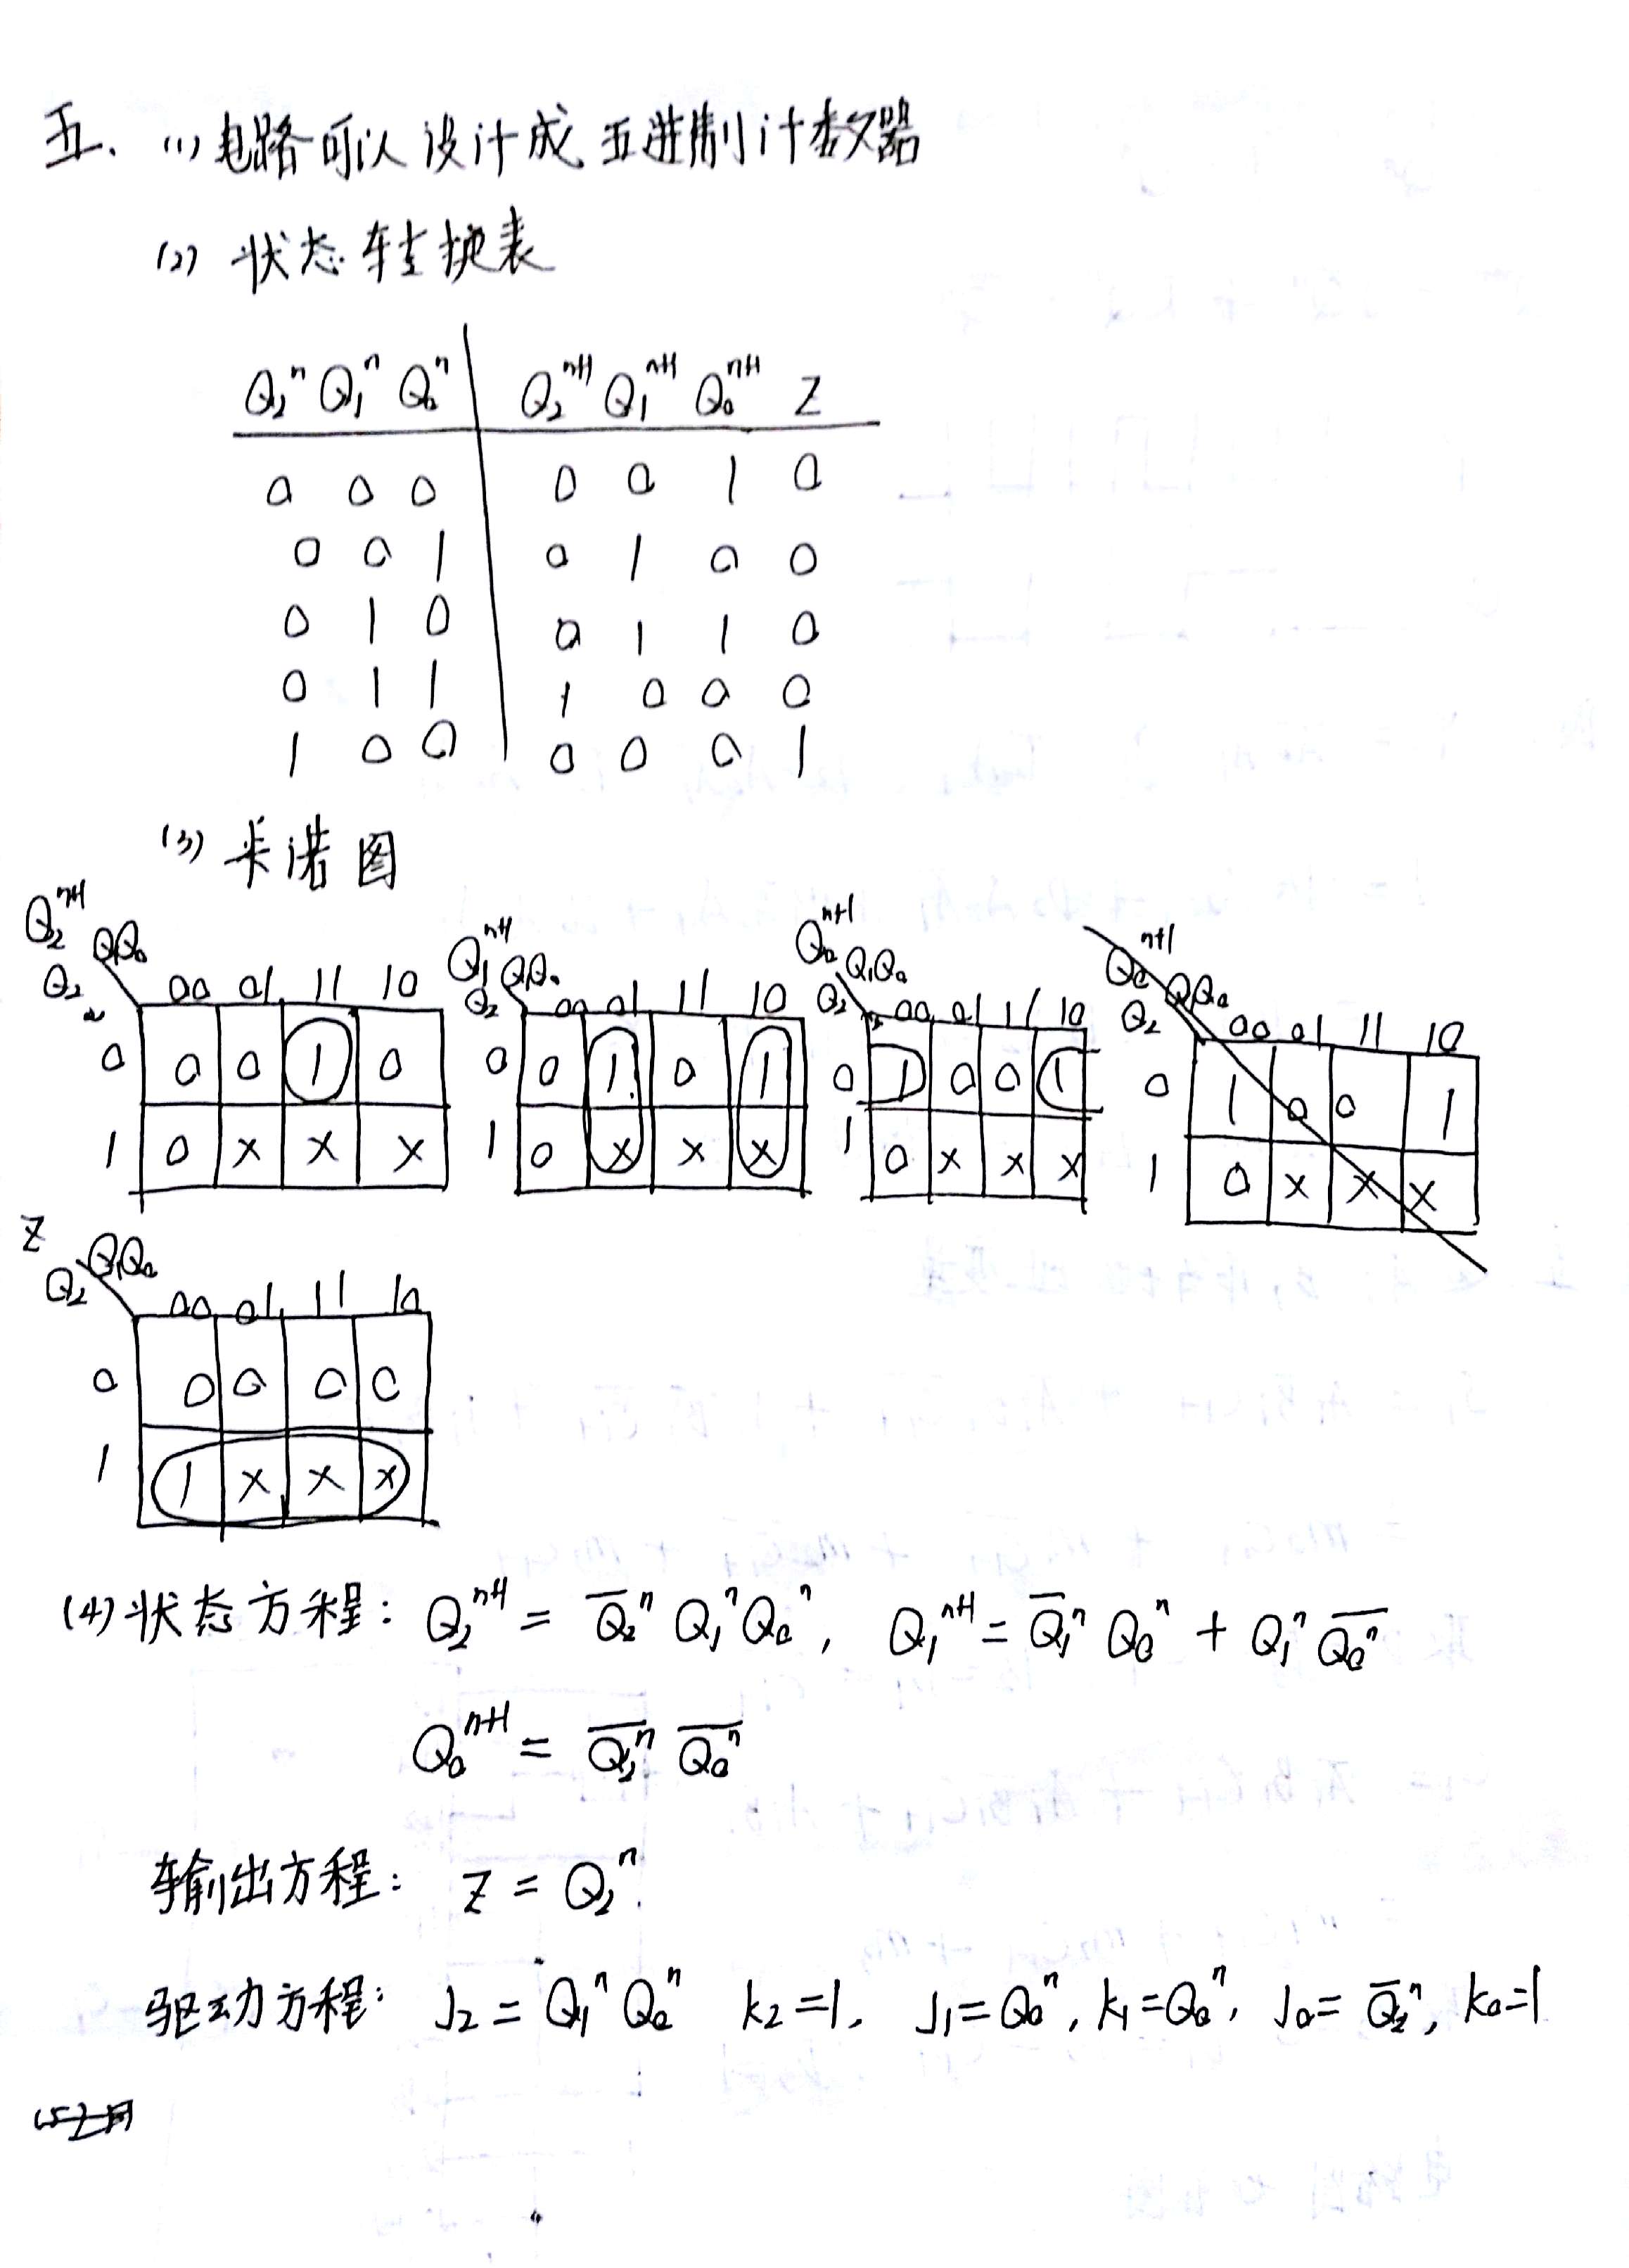 五、(1) 电路可以设计成五进制计数器
(2) 状态转换表
Q₂ⁿ Q₁ⁿ Q₀ⁿ | Q₂ⁿ⁺¹ Q₁ⁿ⁺¹ Q₀ⁿ⁺¹ Z
0 0 0 | 0 0 1 0
0 0 1 | 0 1 0 0
0 1 0 | 0 1 1 0
0 1 1 | 1 0 0 0
1 0 0 | 0 0 0 1
(3) 卡诺图
Q₂ⁿ⁺¹ Q₂ Q₁Q₀ 00 01 11 10
0 0 0 1 0
1 0 x x x
Q₁ⁿ⁺¹ Q₂ Q₁Q₀ 00 01 11 10
0 0 1 0 1
1 0 x x x
Q₀ⁿ⁺¹ Q₂ Q₁Q₀ 00 01 11 10
0 1 0 0 1
1 0 x x x
Q₀ⁿ⁺¹ Q₂ Q₁Q₀ 00 01 11 10
0 1 0 0 1
1 0 x x x
Z Q₂ Q₁Q₀ 00 01 11 10
0 0 0 0 0
1 1 x x x
(4) 状态方程: Q₂ⁿ⁺¹ = Q̅₂ⁿ Q₁ⁿ Q₀ⁿ, Q₁ⁿ⁺¹ = Q̅₁ⁿ Q₀ⁿ + Q₁ⁿ Q̅₀ⁿ
Q₀ⁿ⁺¹ = Q̅₂ⁿ Q̅₀ⁿ
输出方程: Z = Q₂ⁿ.
驱动方程: J₂ = Q₁ⁿ Q₀ⁿ K₂=1, J₁=Q₀ⁿ, K₁=Q₀ⁿ, J₀= Q̅₂ⁿ, K₀=1